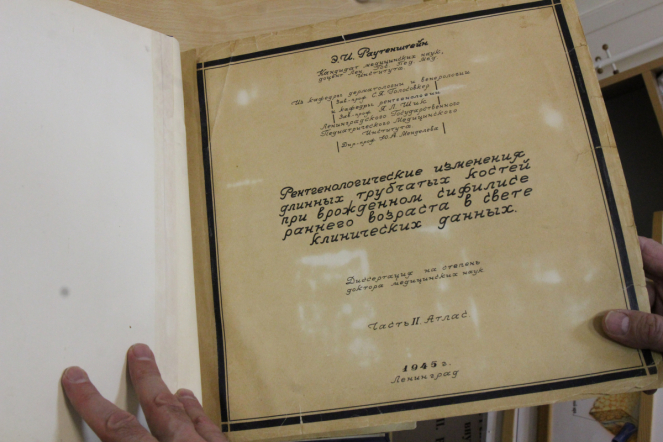 Э.И. Раутенштейн
Кандидат медицинских наук,
доцент Лен. Гос. Пед. Мед.
Института
Из кафедры дерматологии и венерологии
Зав.-проф.
кафедры рентгенологии
Зав.-проф. Я.Л. Шик
Ленинградского Государственного
Педиатрического Медицинского
Института
Дир.-проф. Ю.А. Менделева
Рентгенологические изменения
длинных трубчатых костей
при врожденном сифилисе
раннего возраста в свете
клинических данных.
Диссертация на степень
доктора медицинских наук
Часть II. Атлас
1945 г.
Ленинград